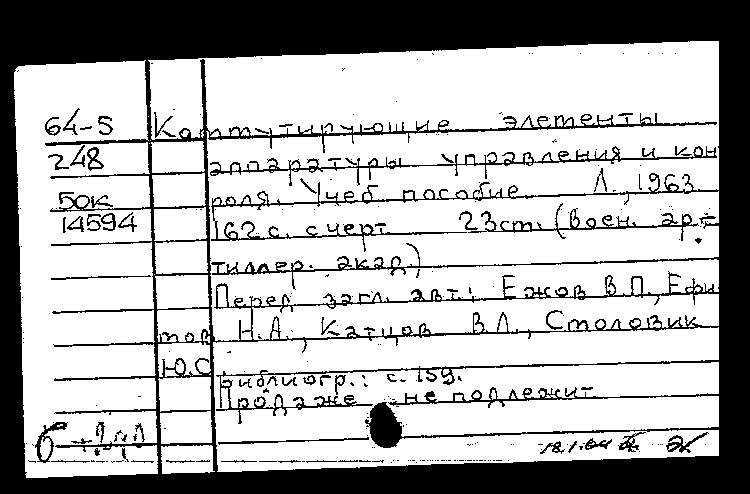 64-5 Коммутирующие элементы
248 аппаратуры управления и кон
50к роля. Учеб пособие Л., 1963
14594 162 с. с черт 23 см. (Воен. ар-
тиллер. акад)
Перед загл. авт.: Ежов В.П., Ефи
мов Н.А., Катцов В.Л., Столовик
Ю.С
Библиогр.: с. 159.
Продаже не подлежит
18.1.64